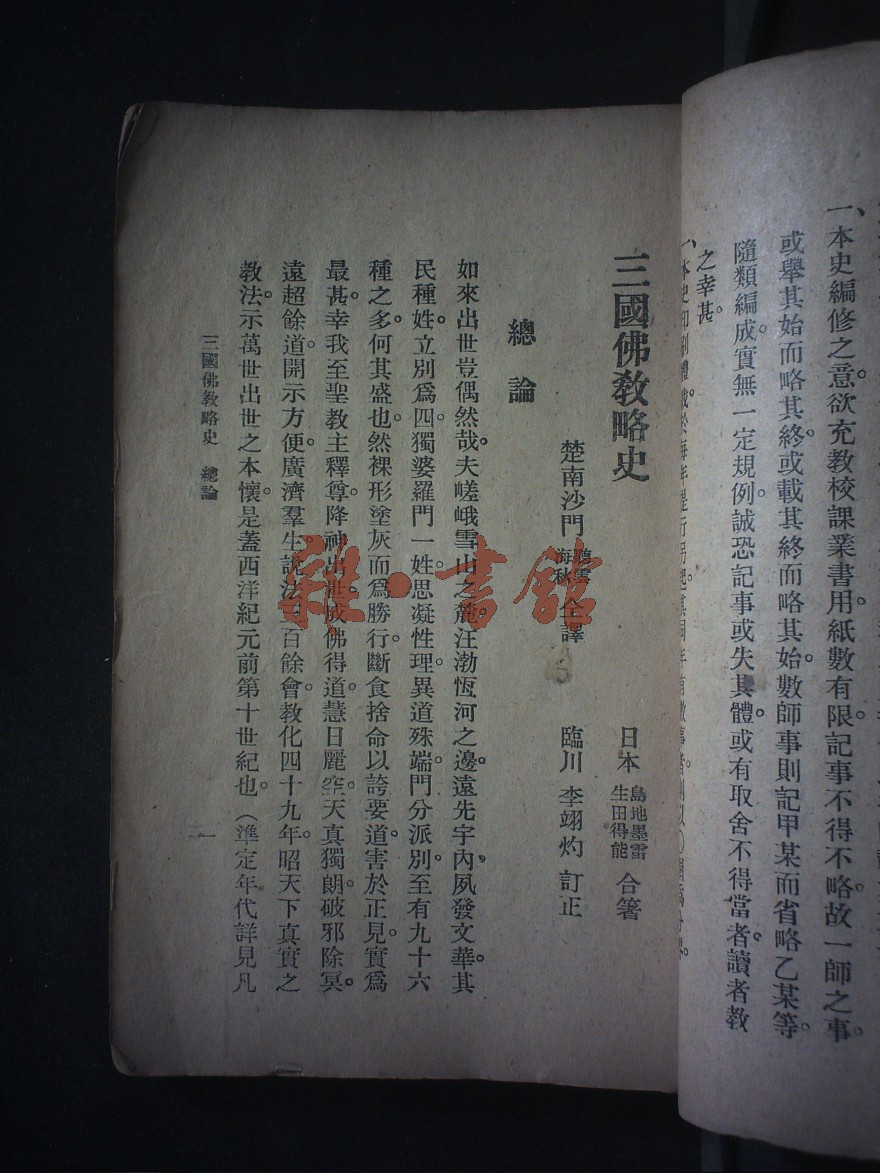 一、本史編修之意。欲充教校課業書。用紙數有限。記事不得不略。故一師之事。
或舉其始而略其終。或載其終而略其始。數師事則記甲某而省略乙某等。
隨類編成。實無一定規例。誠恐記事或失其體。或有取舍不得當者。讀者教
之幸甚。
三國佛教略史
日本 島地墨雷 生田得能 合著
楚南沙門 聽雲 海秋 仝譯
臨川 李翊灼 訂正
總論
如來出世豈偶然哉。夫嵯峨雪山之麓。汪渤恆河之邊。遠先宇內、夙發文華。其
民種姓。立別爲四。獨婆羅門一姓。思凝性理。異道殊端。門分派別。至有九十六
種之多。何其盛也。然裸形塗灰而爲勝行。斷食捨命以誇要道。害於正見。實爲
最甚。幸我至聖教主釋尊。降神出世。成佛得道。慧日麗空。天真獨朗。破邪除冥。
遠超餘道。開示方便。廣濟羣生。說法三百餘會。教化四十九年。昭天下真實之
教法。示萬世出世之本懷。是蓋西洋紀元前第十世紀也。(準定年代詳見凡
三國佛教略史 總論
一
雜·書館